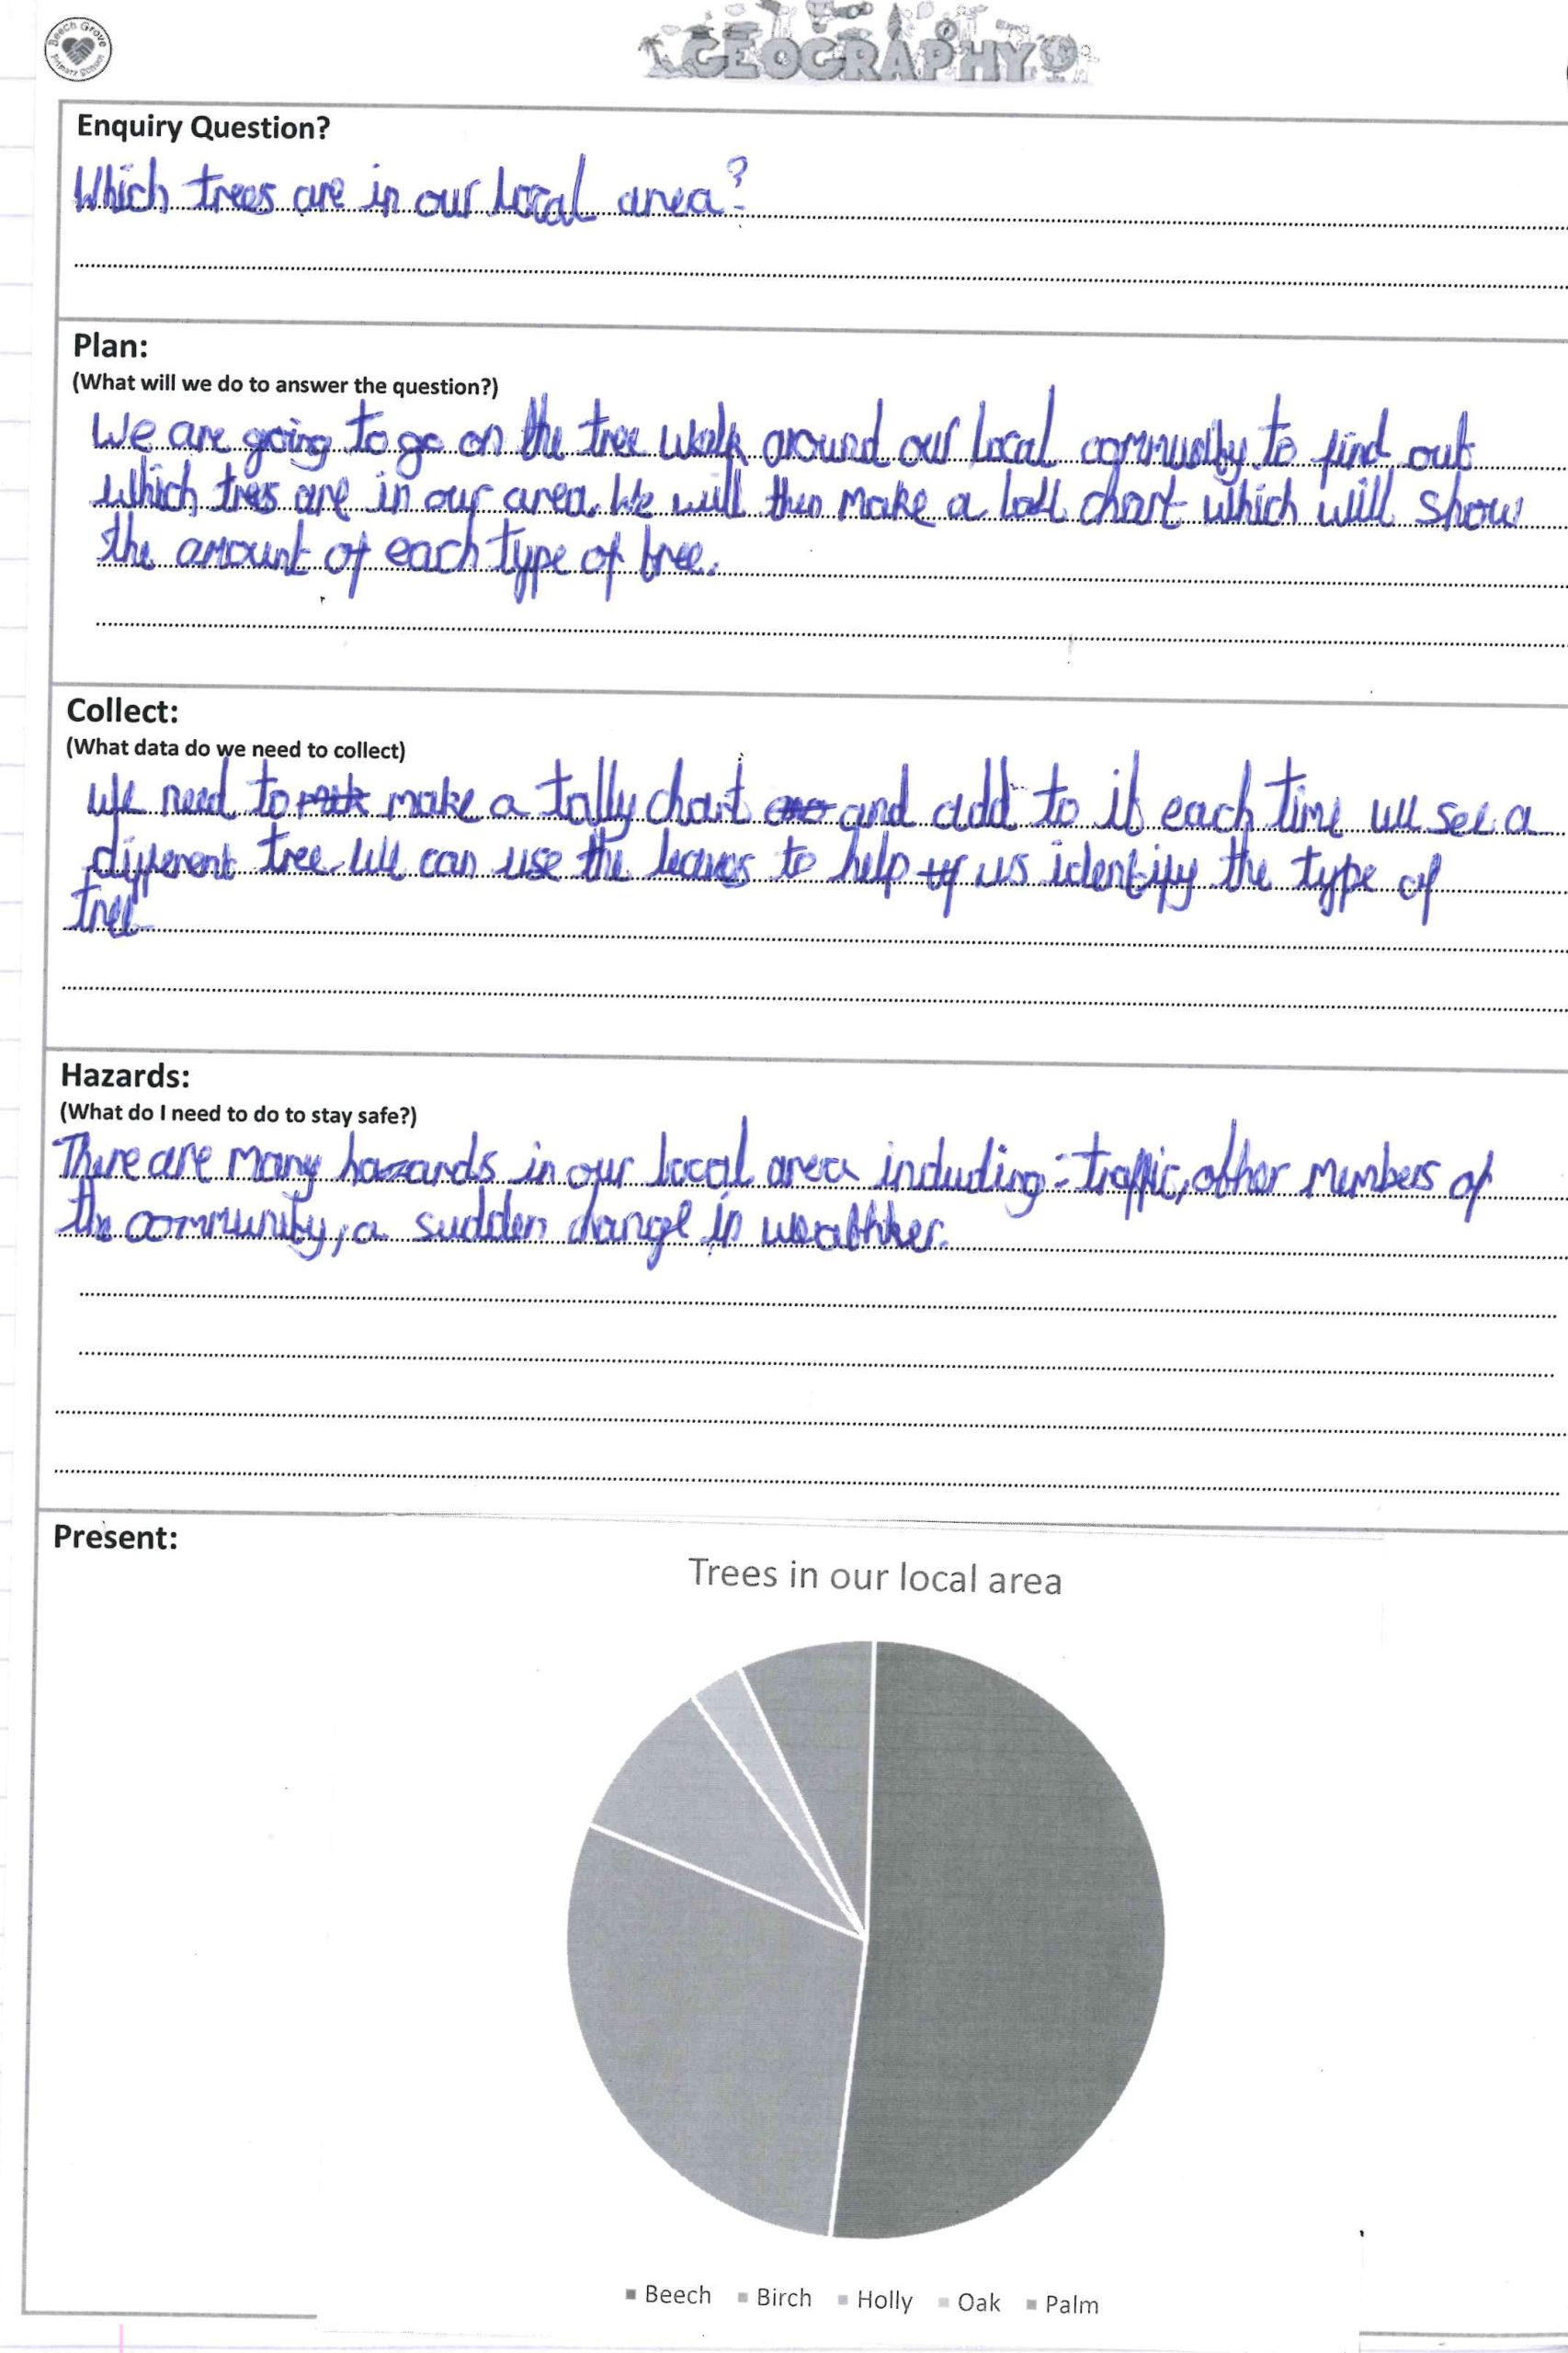 Beech Grove
Primary School
GEOGRAPHY
Enquiry Question?
Which trees are in our local area?
Plan:
(What will we do to answer the question?)
We are going to go on the tree walk around our local community to find out
which tres are in our area. We will then make a chart which will show
the amount of each type of tree.
Collect:
(What data do we need to collect)
We need to make a tally chart and add to it each time we see a
different tree. We can use the leaves to help us identify the type of
tree
Hazards:
(What do I need to do to stay safe?)
There are many hazards in our local area including:- traffic, other members of
the community, a sudden change in
Present:
Trees in our local area
Beech Birch Holly Oak Palm